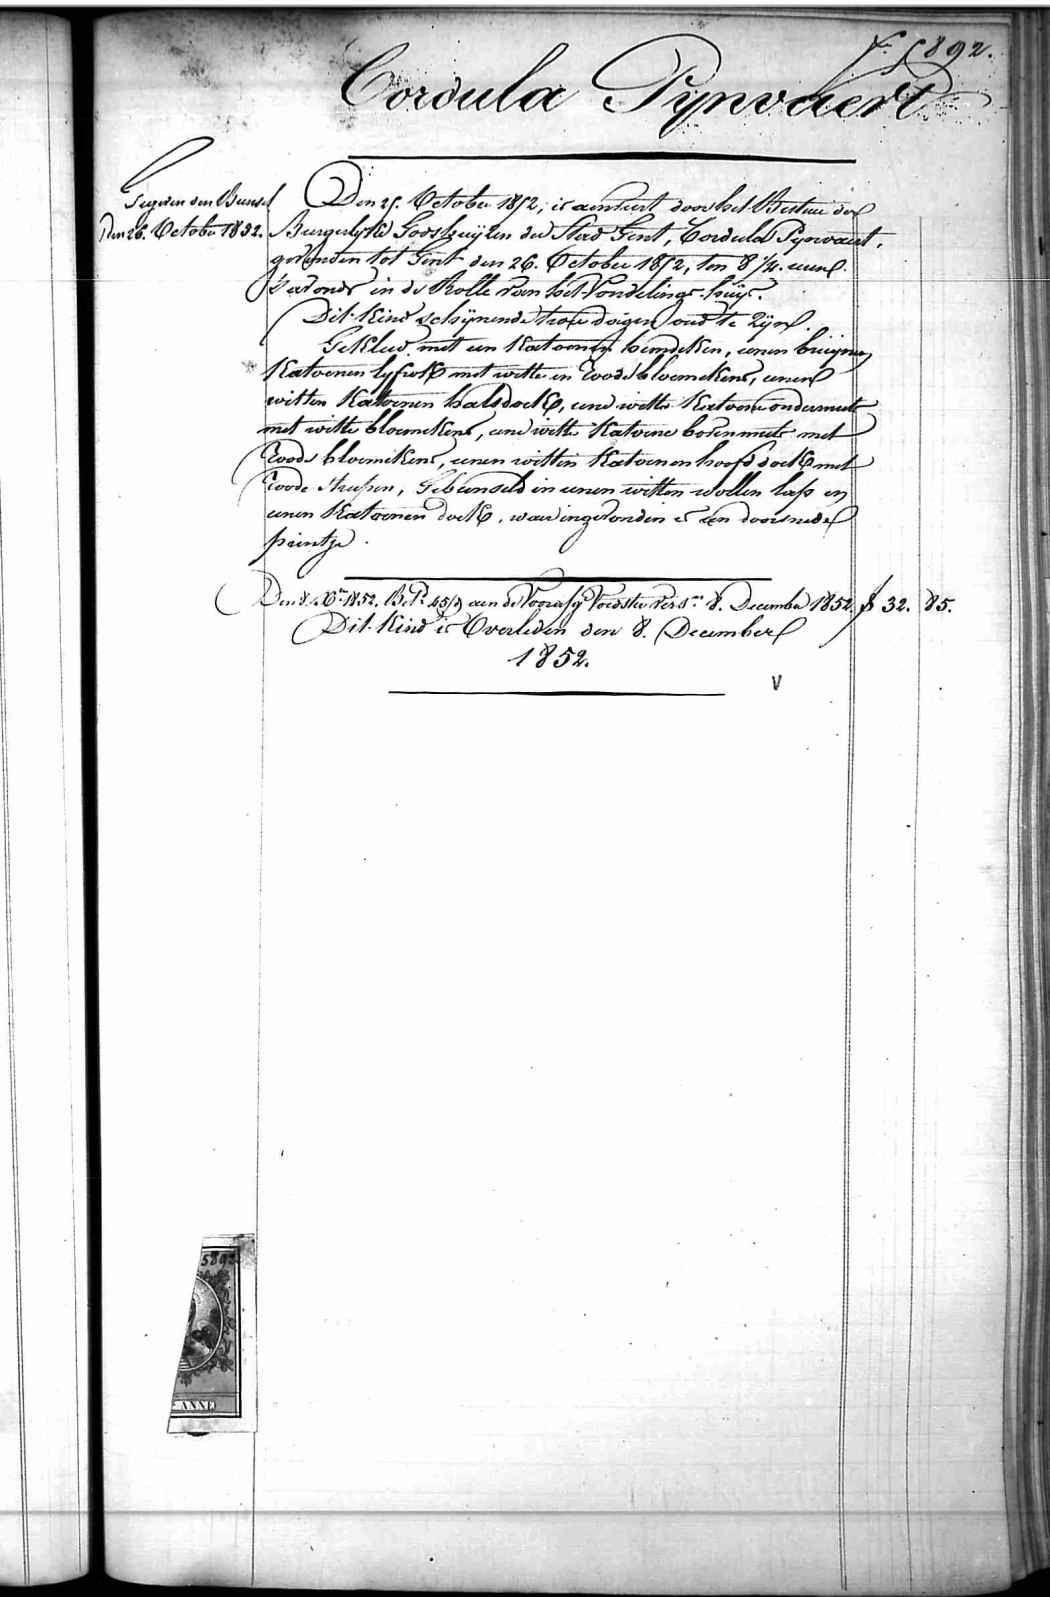 F. 5892.
Cordula Pynvaert
Gegeven den Bussel
den 26. October 1852.
Den 25. October 1852, is aenveert door het Bestier der
Burgerlyke Godshuyzen der Stad Gent, Cordula Pynvaert,
gevonden tot Gent den 26. October 1852, ten 8 1/4. uren
s'avonds in de Rolle van het Vondelings-huys.
Dit Kind schynende twee daegen oud te Zyn.
Gekleed met een Katoenen hemdeken, eenen bruynen
Katoenen lyfrok met witte en roode bloemekens, eenen
witten Katoenen halsdoek, eene witte Katoene ondermuts
met witte bloemekens, eene witte Katoene bovenmuts met
roode bloemekens, eenen witten Katoenen hoofddoek met
roode strepen, Gebunseld in eenen witten wollen lap en
eenen Katoenen doek, waer ingevonden is een doorsnede
printje.
Den 8. Xbr 1852. Betd 45/ aen de Voorsz Voedster vers. 8. December 1852. f 32. 85.
Dit Kind is Overleden den 8. December
1852.
V
5892
ANNE